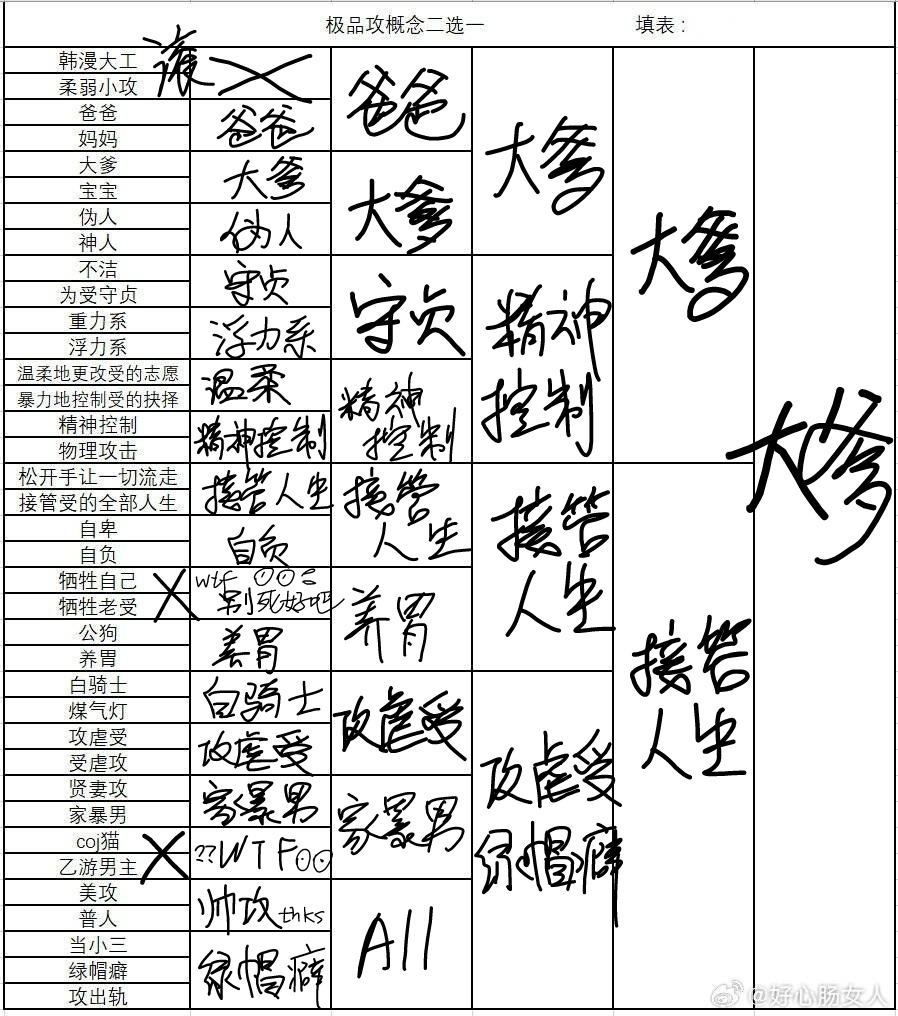 极品攻概念二选一 填表：
韩漫大工
柔弱小攻
滚
爸爸
妈妈
大爹
宝宝
伪人
神人
不洁
为受守贞
重力系
浮力系
温柔地更改受的志愿
暴力地控制受的抉择
精神控制
物理攻击
松开手让一切流走
接管受的全部人生
自卑
自负
牺牲自己
牺牲老受
公狗
养胃
白骑士
煤气灯
攻虐受
受虐攻
贤妻攻
家暴男
coj猫
乙游男主
美攻
普人
当小三
绿帽癖
攻出轨
爸爸
大爹
伪人
守贞
浮力系
温柔
精神控制
接管人生
自负
wtf
别死好吧
养胃
白骑士
攻虐受
家暴男
??WTF
帅攻thks
绿帽癖
爸爸
大爹
守贞
精神
控制
接管
人生
养胃
攻虐受
家暴男
All
大爹
精神
控制
接管
人生
攻虐受
绿帽癖
大爹
接管
人生
大爹
@好心肠女人